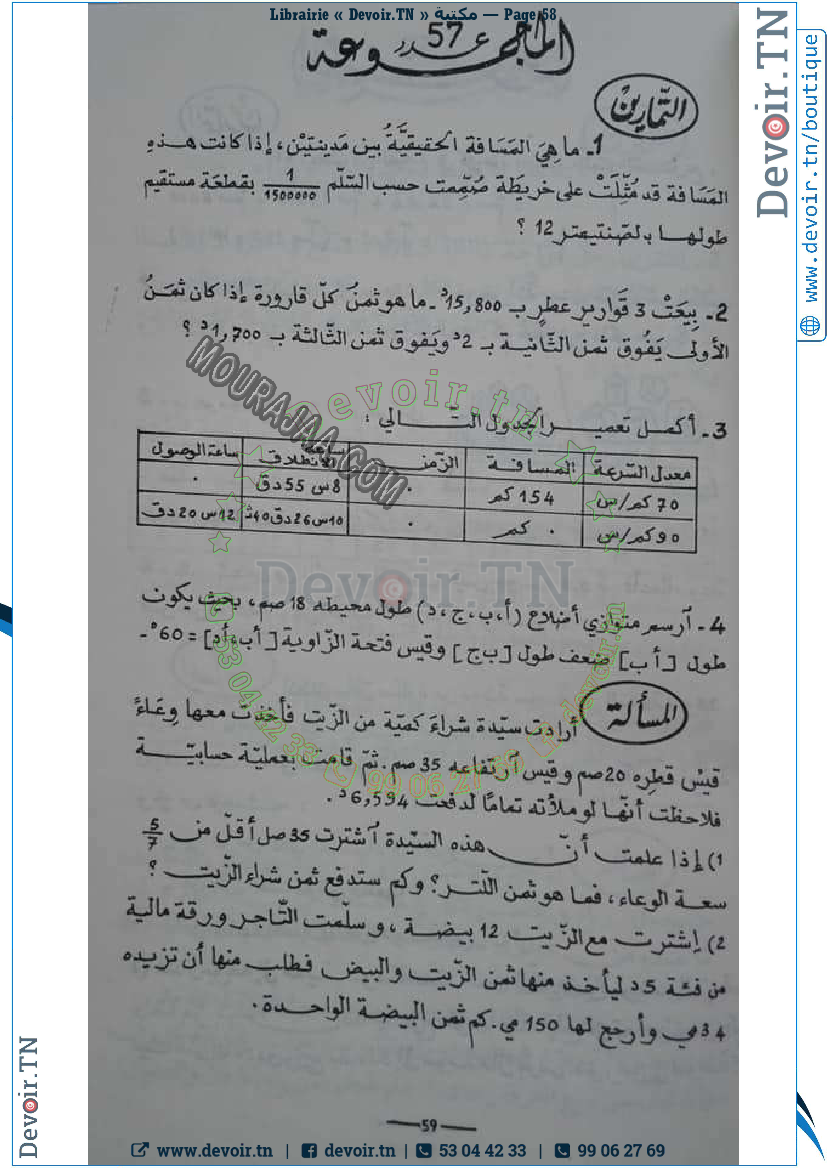 Librairie « Devoir.TN » مكتبة — Page 58
المجموعة عدد 57
التمارين
1. ما هي المسافة الحقيقية بين مدينتين، إذا كانت هذه
المسافة قد مثلت على خريطة صممت حسب السلم 1/1500000 بقطعة مستقيم
طولها بالصنتيمتر 12 ؟
2. بيعت 3 قوارير عطر بـ 15,800د. ما هو ثمن كل قارورة إذا كان ثمن
الأولى يفوق ثمن الثانية بـ 2د ويفوق ثمن الثالثة بـ 1,700د ؟
3. أكمل تعمير الجدول التالي :
معدل السرعة | المسافة | الزمن | ساعة الانطلاق | ساعة الوصول
70 كم/س | 154 كم | . | 8س 55دق | .
90 كم/س | . كم | . | 10س 26دق 40ث | 12س 20دق
4. أرسم متوازي أضلاع (أ، ب، ج، د) طول محيطه 18 صم، بحيث يكون
طول [أ ب] ضعف طول [ب ج] وقيس فتحة الزاوية [أب، أد] = 60°.
المسألة
أرادت سيدة شراء كمية من الزيت فأخذت معها وعاء
قيس قطره 20 صم وقيس ارتفاعه 35 صم. ثم قامت بعملية حسابية
فلاحظت أنها لو ملأته تماما لدفعت 6,594د.
1) إذا علمت أن هذه السيدة اشترت 35 صل أقل من 5/7
سعة الوعاء، فما هو ثمن اللتر؟ وكم ستدفع ثمن شراء الزيت ؟
2) إشترت مع الزيت 12 بيضة، وسلمت التاجر ورقة مالية
من فئة 5د ليأخذ منها ثمن الزيت والبيض فطلب منها أن تزيده
34 مي وأرجع لها 150 مي. كم ثمن البيضة الواحدة.
59
MOURAJAA.COM
devoir.tn
Devoir.TN
53 04 42 33
99 06 27 69
devoir.tn
Devoir.TN
www.devoir.tn/boutique
Devoir.TN
www.devoir.tn | devoir.tn | 53 04 42 33 | 99 06 27 69